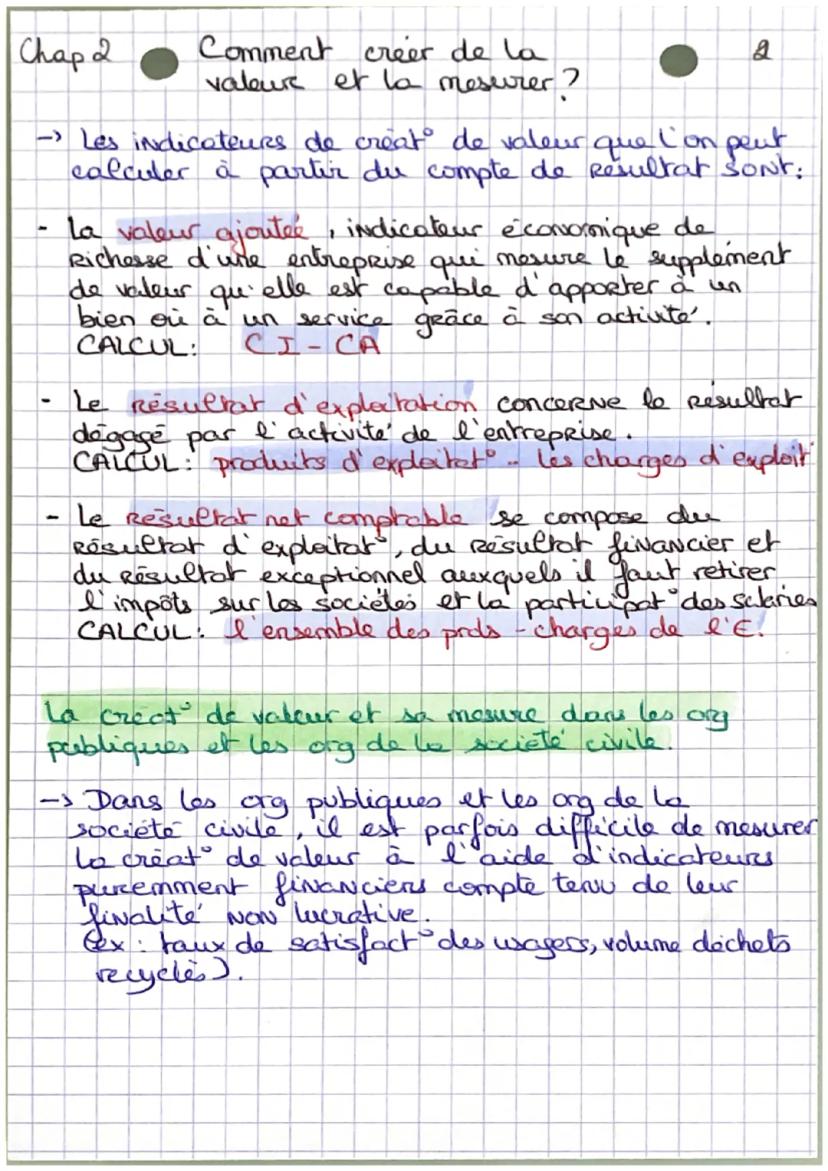 Chap 2 Comment créer de la 2
valeur et la mesurer ?
-> Les indicateurs de créat° de valeur que l'on peut
calculer à partir du compte de Résultat SONT:
- La valeur ajoutée, indicateur économique de
Richesse d'une entreprise qui mesure le supplément
de valeur qu'elle est capable d'apporter à un
bien où à un service grâce à son activité.
CALCUL: CI - CA
- Le Résultat d'exploitation concerne le résultat
dégagé par l'activité de l'entreprise.
CALCUL: produits d'exploitat° - les charges d'exploit
- Le Résultat net comptable se compose du
Résultat d'exploitat°, du Résultat financier et
du Résultat exceptionnel auxquels il faut retirer
l'impôts sur les sociétés et la participat° des salariés
CALCUL: l'ensemble des prds - charges de l'E.
La créat° de valeur et sa mesure dans les org
publiques et les org de la société civile.
-> Dans les org publiques et les org de la
société civile, il est parfois difficile de mesurer
la créat° de valeur à l'aide d'indicateurs
puremment financiers compte tenu de leur
finalité non lucrative.
(ex : taux de satisfact° des usagers, volume déchets
recyclés).